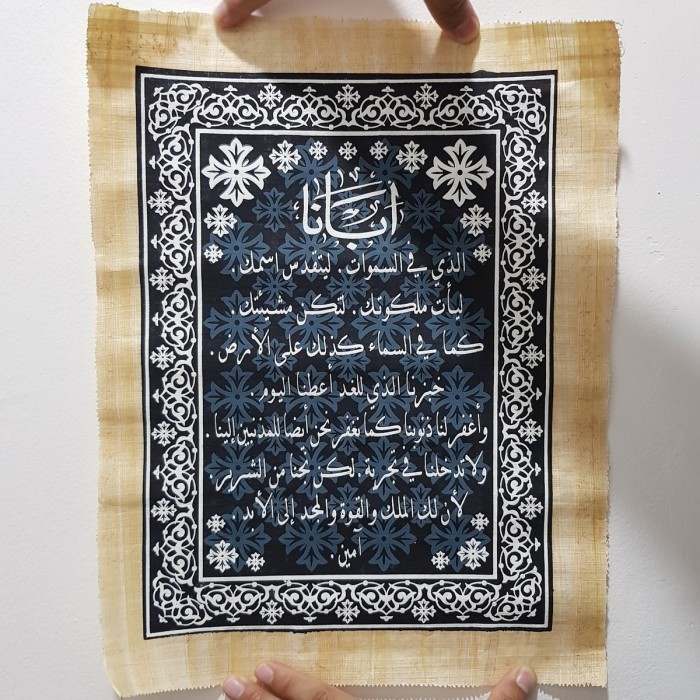 أبانا
الذي في السموات . ليتقدس اسمك .
ليأت ملكوتك . لتكن مشيئتك .
كما في السماء كذلك على الأرض .
خبزنا الذي للغد أعطنا اليوم .
وأغفر لنا ذنوبنا كما نغفر نحن أيضا للمذنبين إلينا .
ولا تدخلنا في تجربة . لكن نجنا من الشرير .
لأن لك الملك والقوة والمجد إلى الأبد .
آمين .